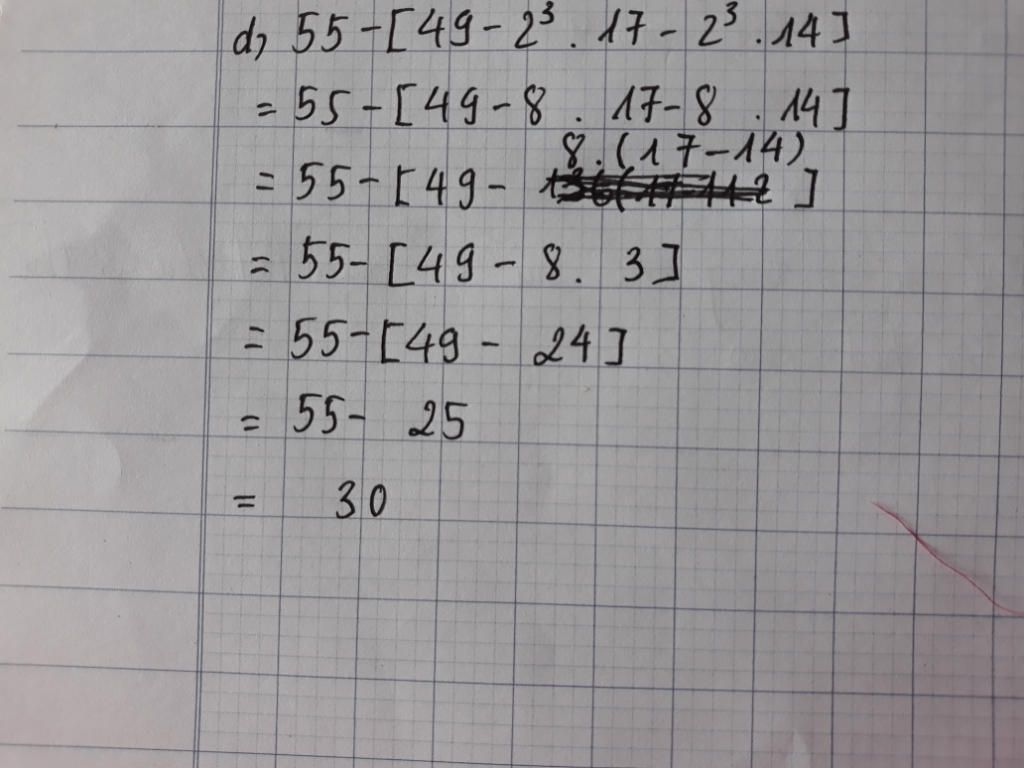 d, 55 - [49 - 2³ . 17 - 2³ . 14]
= 55 - [49 - 8 . 17 - 8 . 14]
= 55 - [49 - 8.(17 - 14) ]
= 55 - [49 - 8. 3]
= 55 - [49 - 24]
= 55 - 25
= 30